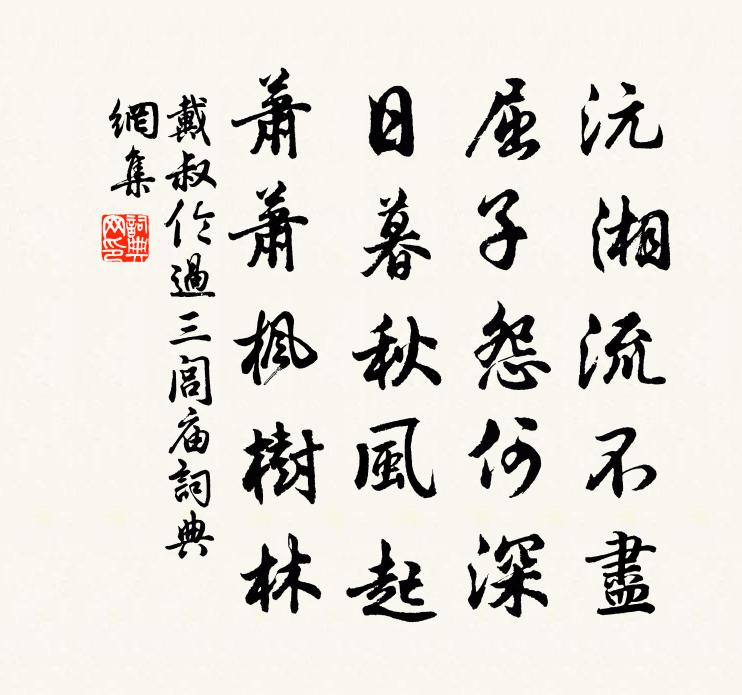 沅湘流不盡
屈子怨何深
日暮秋風起
蕭蕭楓樹林
戴叔伦過三閭庙詞典
網集
詞典網印